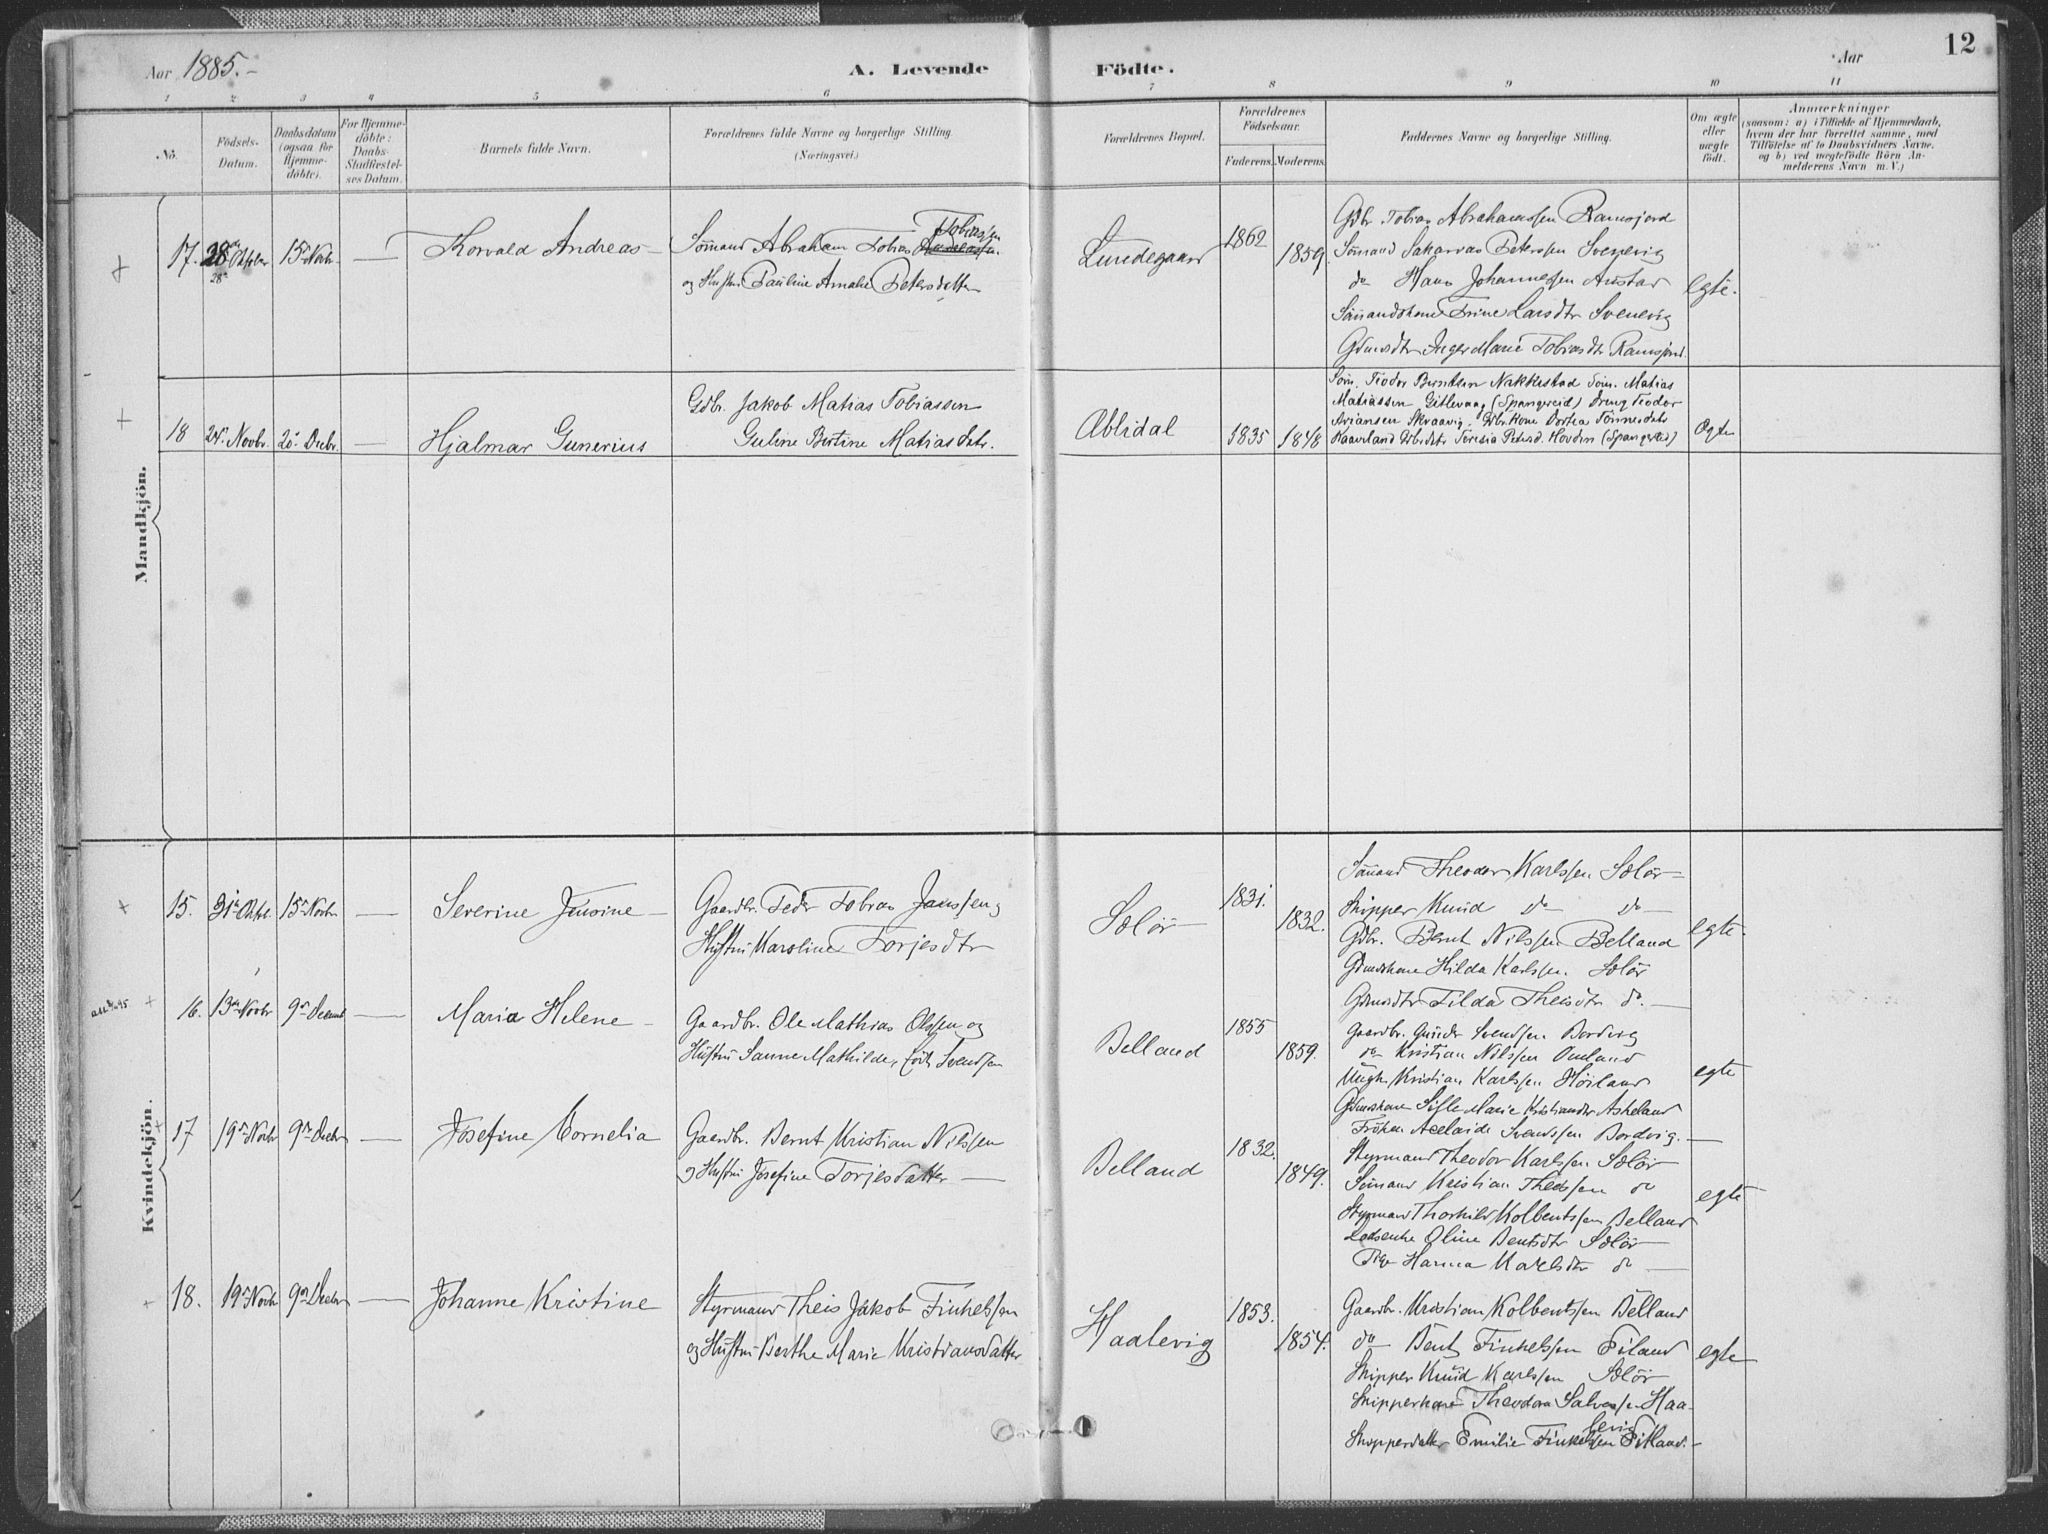 Aar 1885.-
A. Levende
Födte.
Aar
12
1 2 3 4 5 6 7 8 9 10 11
No.
Födsels-
Datum.
Daabsdatum
(ogsaa for
Hjemme-
döbte).
For Hjemme-
döbte:
Daabs-
Stadfæstel-
ses Datum.
Barnets fulde Navn.
Forældrenes fulde Navne og borgerlige Stilling.
(Næringsvei.)
Forældrenes Bopæl.
Forældrenes
Födselsaar.
Faderens. Moderens.
Faddernes Navne og borgerlige Stilling.
Om ægte
eller
uægte
födt.
Anmærkninger
(saasom: a) i Tilfælde af Hjemmedaab,
hvem der har forrettet samme, med
Tilföielse af to Daabsvidners Navne.
og b) ved uægtefödte Börn An-
melderens Navn m. V.)
Mandkjön.
17. 28de Oktober 15de Novbr — Korvald Andreas —
28de
Sömand Abraham Tobias Andreassen Tobiassen
og Hustru Pauline Amalie Petersdatter
Lundegaard
1862
1859.
Gdbr. Tobias Abrahamssen Ramsjord
Sömand Sakarias Peterssen Svenevig
do Hans Johannessen Austad
Sömandskone Trine Larsdtr Svenevig
Gdmsdtr Inger Marie Tobiasdtr Ramsjord.
egte.
18 24de Novbr. 20de Decbr. — Hjalmar Gunerius
Gdbr. Jakob Matias Tobiassen
Guline Bertine Matiasdatr.
Ablidal
1835 1848
Söm. Teodor Berntsen Nakkestad Söm. Matias
Matiassen Gitlevaag (Spangereid) Dreng Teodor
Ariansen Skraavig, Gdbr. Kone Dortea Tönnesdatr
Kaavland Gdbr.datr Teresia Petersd. Hovden (Spangereid)
Ægte
Kvindekjön.
15. 31te Oktbr. 15de Novbr — Severine Jensine —
Gaardbr. Peder Tobias Janssen og
Hustru Karoline Torjesdtr
Sælör
1831.
1832.
Sömand Theodor Karlssen Sælör
Skipper Knud do do
Gdbr. Bernt Nilssen Belland
Gdmdskone Hilda Karlssen Sælör
Gdmdsdtr Tilda Theisdtr do. —
egte.
16. 13de Novbr 9de Decmbr — Maria Helene —
Gaardbr. Ole Mathias Olssen og
Hustru Sanne Mathilde, född Svendsen
Belland
1855
1859.
Gaardbr. Gunder Svendssen Bordvig
do Kristian Nilssen Omland
Ungk. Kristian Karlssen Höiland
Gdmdskone Sille Marie Kristiansdtr Askeland
Fröken Adelaide Svendssen Bordvig. —
egte
17 19de Novbr 9de Decbr — Josefine Cornelia
Gaardbr. Bernt Kristian Nilssen
og Hustru Josefine Torjesdatter —
Belland
1832.
1849.
Styrmand Theodor Karlssen Sælör
Sömand Kristian Theissen do
Styrmand Thorkild Kolbentssen Belland
Lodsenke Oline Bentsdtr Sælör
Pige Hanna Karlsdtr do —
egte
18. 19de Novbr 9de Decbr — Johanne Kristine
Styrmand Theis Jakob Finkelssen
og Hustru Berthe Marie Kristiansdatter
Haalevig
1853.
1854.
Gaardbr. Kristian Kolbentssen Belland
do Bent Finkelssen Eiland
Skipper Knud Karlssen Sælör
Skipperkone Theodora Salvessen Haa-
levig
Skipperdatter Emilie Finkelssen Eiland. —
egte